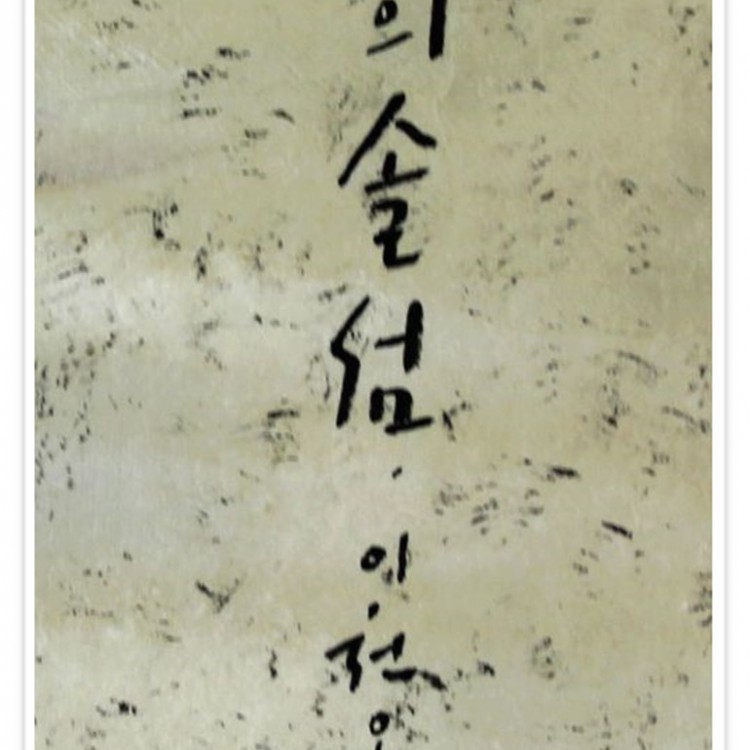 의 솔섬. 이천